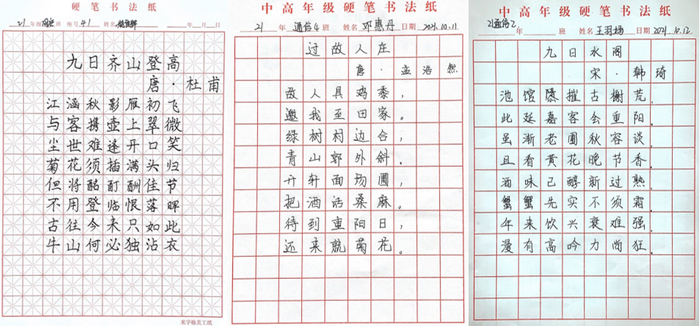 硬笔书法纸
九日齐山登高
唐·杜甫
江涵秋影雁初飞
与客携壶上翠微
尘世难逢开口笑
菊花须插满头归
但将酩酊酬佳节
不用登临恨落晖
古往今来只如此
牛山何必独沾衣
米字格美工纸
中高年级硬笔书法纸
21 年 通信4 班 姓名 日期 2021.10.11
过故人庄
唐·孟浩然
故人具鸡黍，
邀我至田家。
绿树村边合，
青山郭外斜。
开轩面场圃，
把酒话桑麻。
待到重阳日，
还来就菊花。
中高年级硬笔书法纸
21通信2 年 班 姓名 日期 2021.10.12
九日水阁
宋·韩琦
池馆隳摧古榭荒，
此延嘉客会重阳。
虽渐老圃秋容谈，
且看黄花晚节香。
酒味已醇新过熟，
蟹螯先实不须霜。
年来饮兴衰难强，
漫有高吟力尚狂。